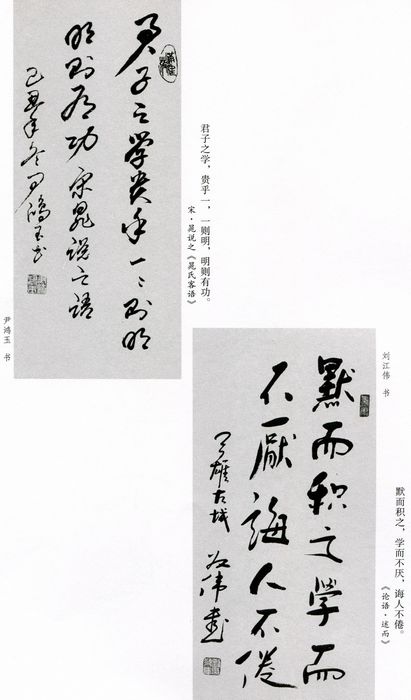 君子之學贵乎一一则明
明则有功宋晁説之語
己丑年冬尹鴻玉书
君子之学，贵乎一，一则明，明则有功。
宋·晁说之《晁氏客语》
尹鸿玉 书
刘江伟 书
默而积之學而
不厭誨人不倦
古城
默而积之，学而不厌，诲人不倦。
《论语·述而》